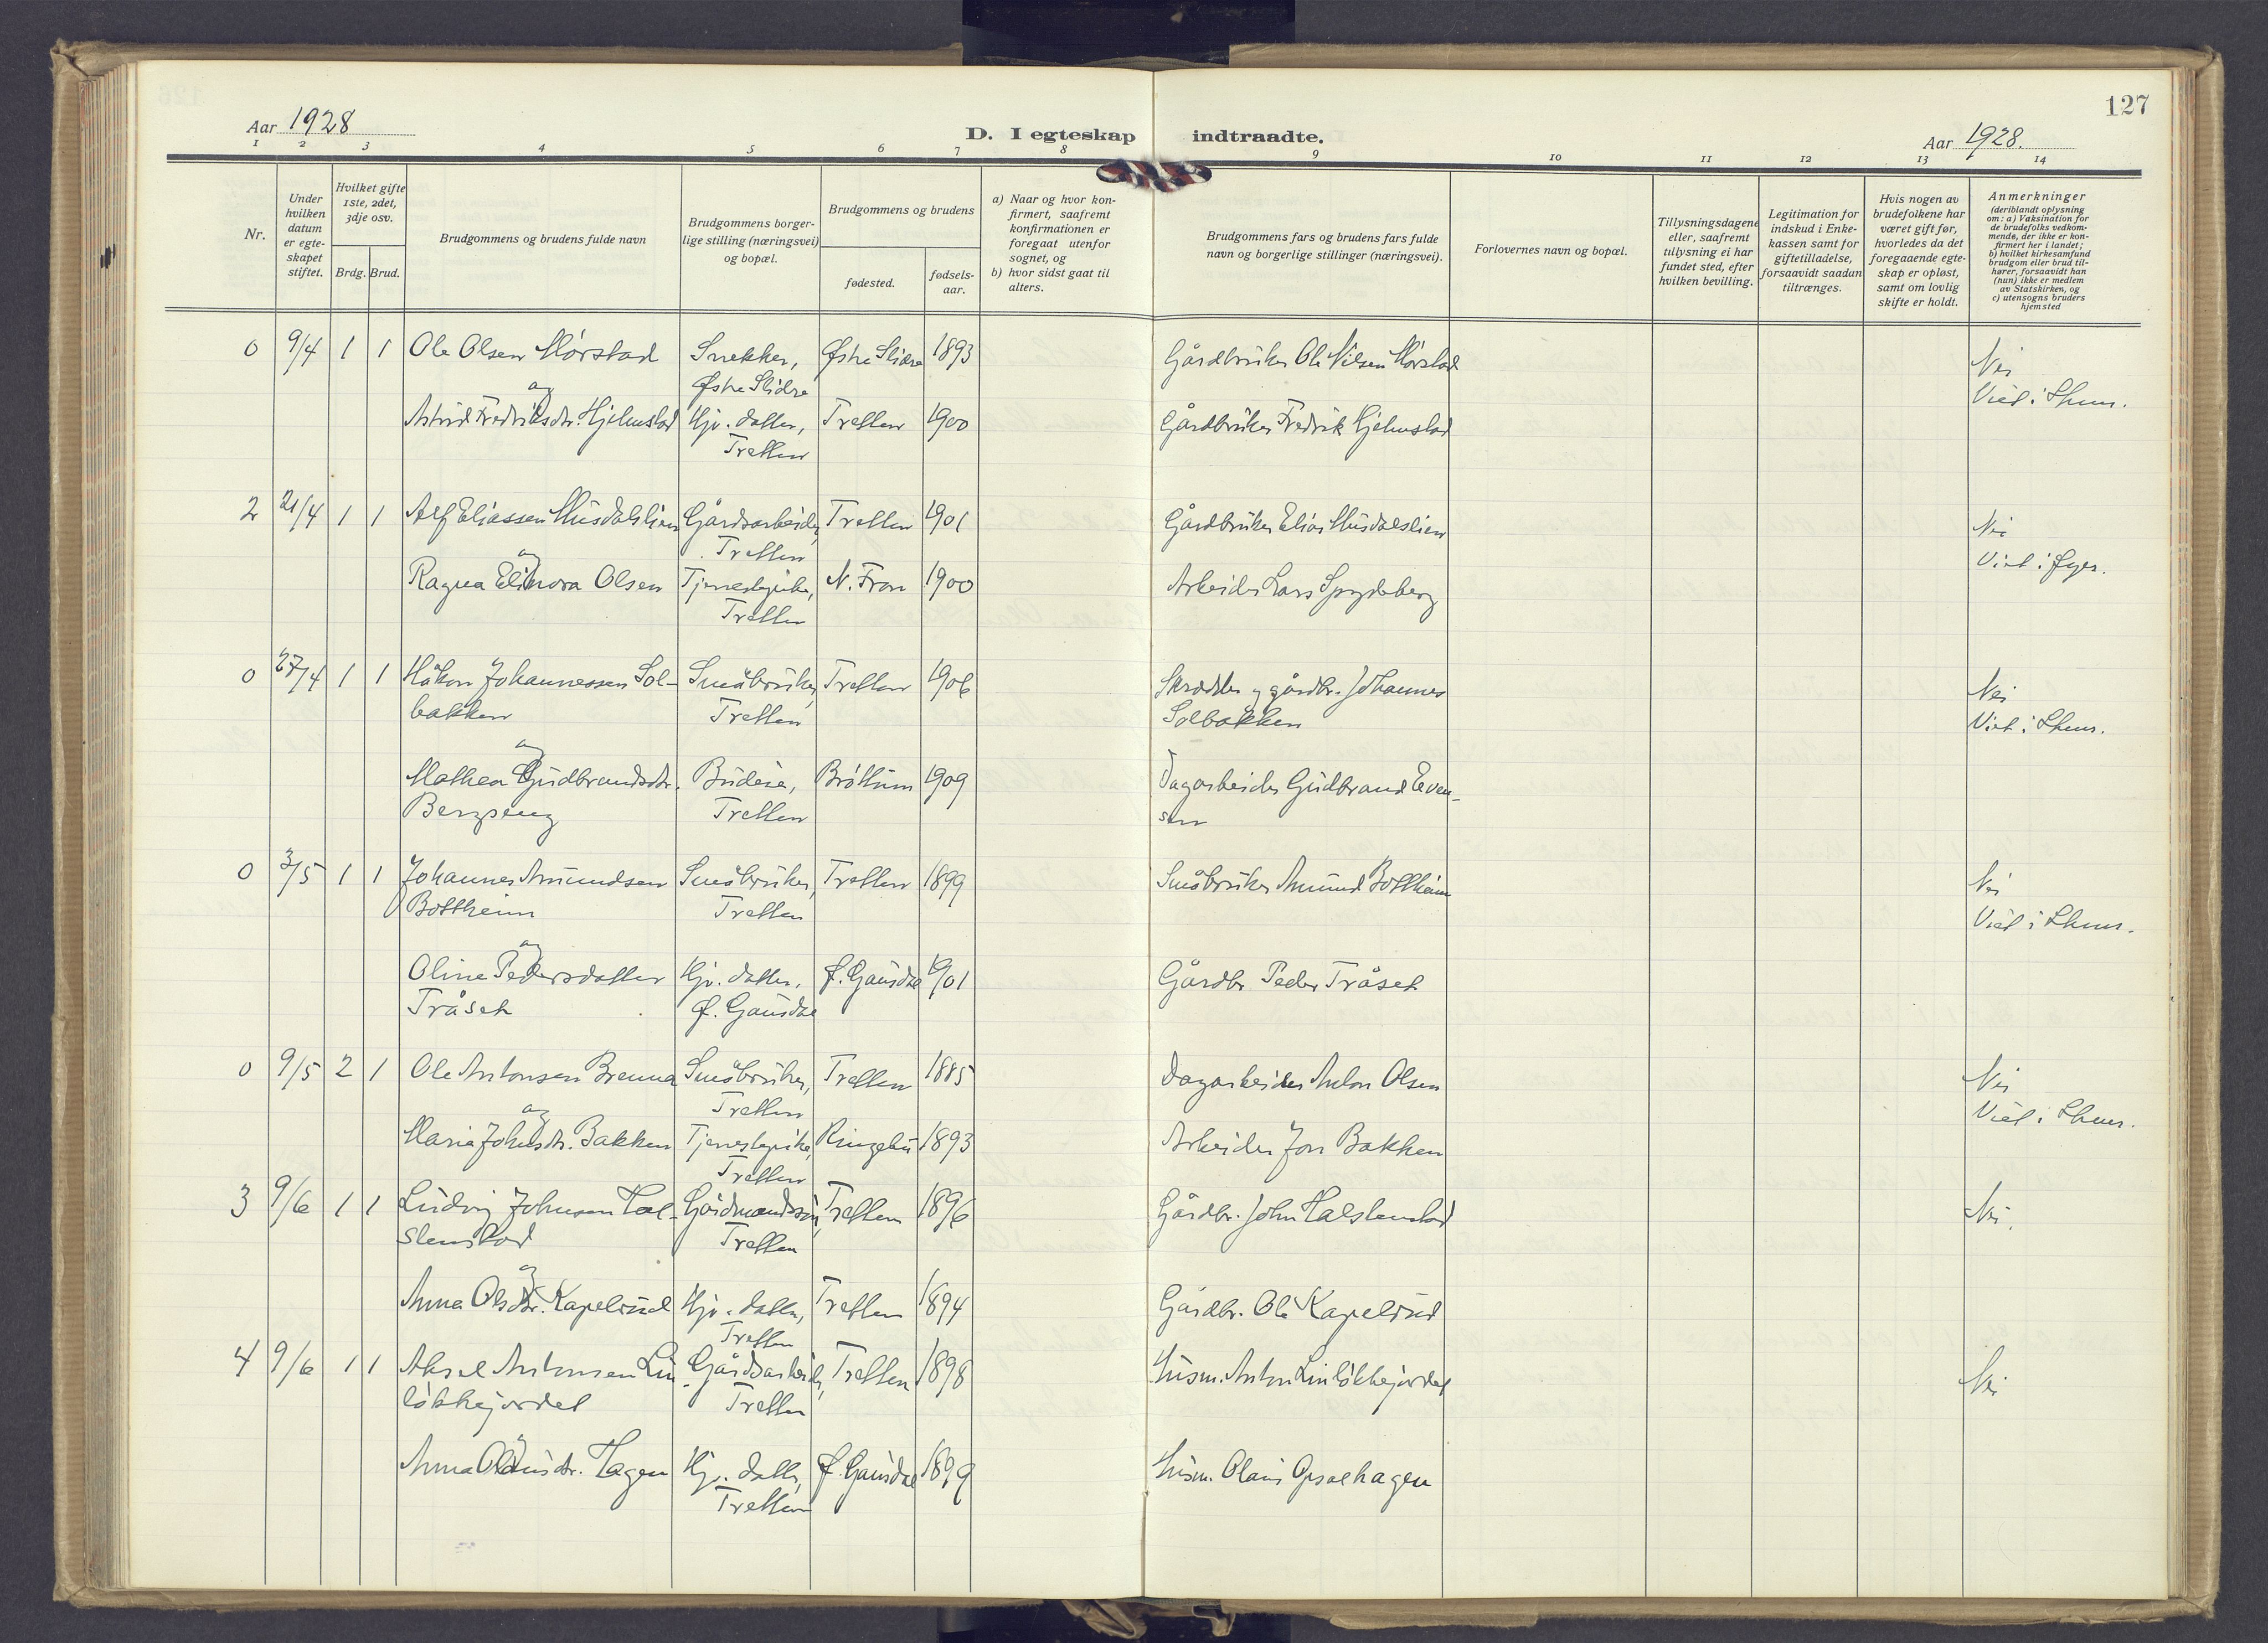 127
Aar 1928
D. I egteskap indtraadte.
Aar 1928.
1 2 3 4 5 6 7 8 9 10 11 12 13 14
Nr.
Under hvilken datum er egte-skapet stiftet.
Hvilket gifte 1ste, 2det, 3dje osv.
Brdg. Brud.
Brudgommens og brudens fulde navn
Brudgommens borger-lige stilling (næringsvei) og bopæl.
Brudgommens og brudens
fødested.
fødsels-aar.
a) Naar og hvor kon-firmert, saafremt konfirmationen er foregaat utenfor sognet, og
b) hvor sidst gaat til alters.
Brudgommens fars og brudens fars fulde navn og borgerlige stillinger (næringsvei).
Forlovernes navn og bopæl.
Tillysningsdagene eller, saafremt tillysning ei har fundet sted, efter hvilken bevilling.
Legitimation for indskud i Enke-kassen samt for giftetilladelse, forsaavidt saadan tiltrænges.
Hvis nogen av brudefolkene har været gift før, hvorledes da det foregaaende egte-skap er opløst, samt om lovlig skifte er holdt.
Anmerkninger (deriblandt oplysning om: a) Vaksination for de brudefolks vedkom-mende, der ikke er kon-firmert her i landet; b) hvilket kirkesamfund brudgom eller brud til-hører, forsaavidt han (hun) ikke er medlem av Statskirken, og c) utensogns bruders hjemsted
0 9/4 1 1 Ole Olsen Mørstad Snekker, Østre Slidre 1893 Gårdbruker Ole Nilsen Mørstad Nei
og Østre Slidre Viet i Lhmr.
Astrid Fredriksdtr. Hjelmstad Hjv. datter, Tretten 1900 Gårdbruker Fredrik Hjelmstad
Tretten
2 21/4 1 1 Alf Eliassen Musdalslien Gårdsarbeider, Tretten 1901 Gårdbruker Elias Musdalslien Nei
og Tretten Viet i Øyer.
Ragna Elinora Olsen Tjenestepike, N. Fron 1900 Arbeider Lars Spydeberg
Tretten
0 27/4 1 1 Håkon Johannessen Sol- Småbruker, Tretten 1906 Skrædder og gårdbr. Johannes Nei
bakken Tretten Solbakken Viet i Lhmr.
og
Mathea Gudbrandsdtr. Budeie, Brøttum 1909 Dagarbeider Gudbrand Even-
Bergseng Tretten sen
0 3/5 1 1 Johannes Amundsen Småbruker, Tretten 1899 Småbruker Amund Bottheim Nei
Bottheim Tretten Viet i Lhmr.
og
Oline Pedersdatter Hjv. datter, Ø. Gausdal 1901 Gårdbr. Peder Tråset
Tråset Ø. Gausdal
0 9/5 2 1 Ole Antonsen Brenna Småbruker, Tretten 1885 Dagarbeider Anton Olsen Nei
og Tretten Viet i Lhmr.
Maria Johnsdtr. Bakken Tjenestepike, Ringebu 1893 Arbeider Jon Bakken
Tretten
3 9/6 1 1 Ludvig Johnsen Hal- Gårdmandssøn, Tretten 1896 Gårdbr. John Halstenstad Nei.
stenstad Tretten
og
Anna Olsdtr. Kapelrud Hjv. datter, Tretten 1894 Gårdbr. Ole Kapelrud
Tretten
4 9/6 1 1 Aksel Antonsen Lin- Gårdsarbeider, Tretten 1898 Husm. Anton Linløkkejordet Nei
løkkejordet Tretten
og
Anna Olausdtr. Hagen Hjv. datter, Ø. Gausdal 1899 Husm. Olaus Opsalhagen
Tretten